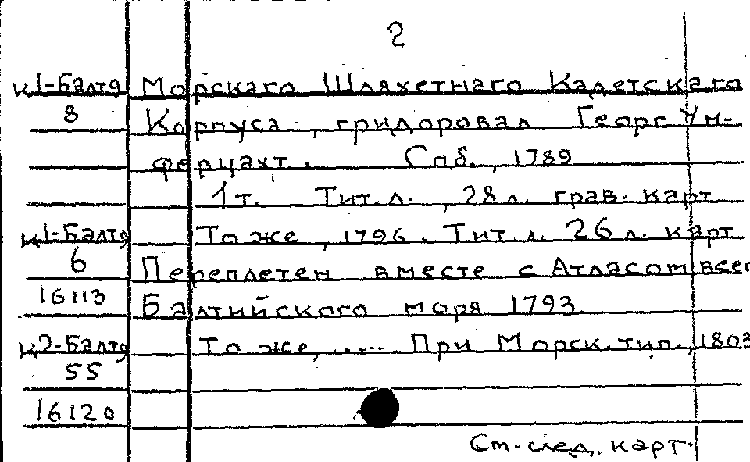 2
К1-Балтя Морскаго Шляхетнаго Кадетскаго
8 Корпуса, гридоровал Георг Ун-
ферцахт. Спб., 1789
1 т. Тит. л., 28 л. грав. карт
К1-Балтя То же, 1796. Тит. л. 26 л. карт
6 Переплетен вместе с Атласом всег
16113 Балтийского моря 1793
К2-Балтя То же, .... При Морск. тип. 1803
55
16120
См. след. карт.